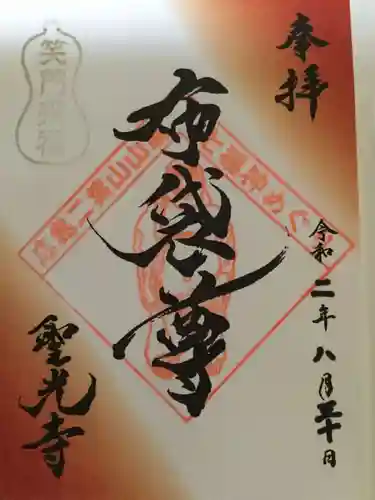 奉拝
令和二年八月三十日
布袋尊
笑門来福
聖光寺